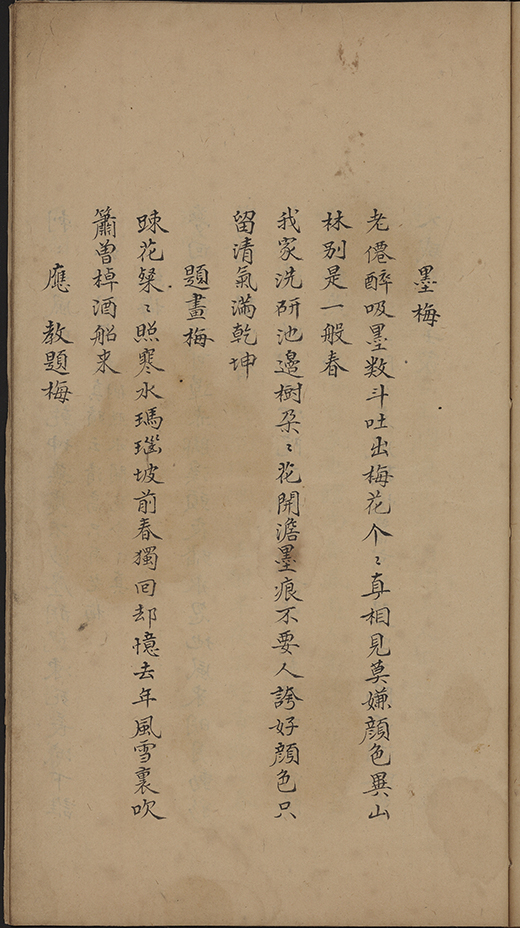 墨梅
老僊醉吸墨数斗吐出梅花个〻真相見莫嫌顔色異山
林别是一般春
我家洗研池邉樹朶〻花開澹墨痕不要人誇好顔色只
留清氣滿乾坤
題畫梅
疎花粲〻照寒水瑪瑙坡前春獨回却憶去年風雪裏吹
簫曾棹酒船来
應 教題梅